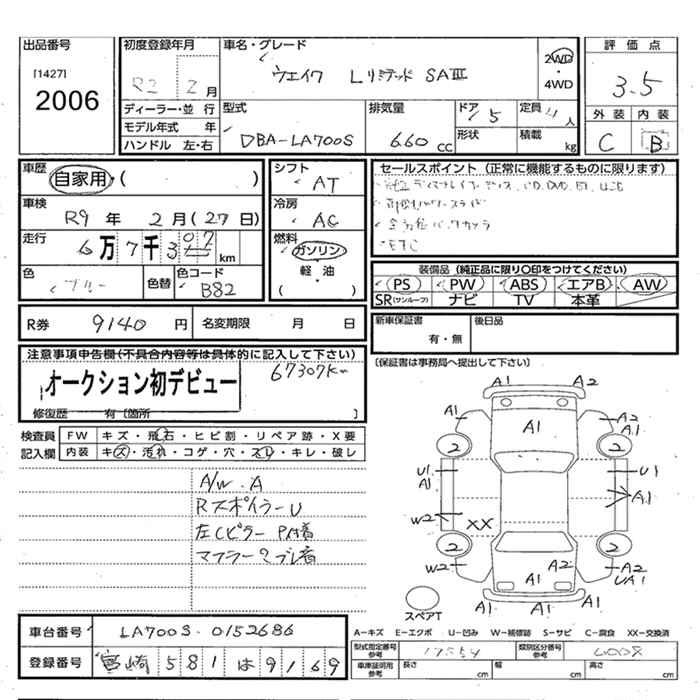 出品番号
[1427]
2006
初度登録年月
R2 2月
ディーラー・並行
モデル年式 年
ハンドル 左・右
車名・グレード
ウエイク Lリミテッド SAⅢ
2WD
・
4WD
型式
DBA-LA700S
排気量
660 cc
ドア
5
形状
定員
4人
積載
kg
評価点
3.5
外装 内装
C B
車歴
自家用・( )
車検
R9年 2月(27日)
走行
6万7千307km
色
ブルー
色替
色コード
B82
シフト
AT
冷房
AC
燃料
ガソリン
軽・油
( )
セールスポイント (正常に機能するものに限ります)
・全方位バックカメラ
・ETC
装備品 (純正品に限り〇印をつけてください)
PS PW ABS エアB AW
SR(サンルーフ) ナビ TV 本革
R券 9140円
名変期限 月 日
新車保証書
有・無
後日品
[保証書は事務局へ提出して下さい]
注意事項申告欄(不具合内容等は具体的に記入して下さい)
67307Km
オークション初デビュー
修復歴 有[箇所 ]
検査員
記入欄
FW キズ・飛石・ヒビ割・リペア跡・X要
内装 キズ・汚れ・コゲ・穴・スレ・キレ・破レ
A/W A
RスポイラーU
左Cピラー P付着
マフラー サブレ音
A1 A2
A1 A1 A2
A1
2 2
U1 U1
A1 A1
W2 XX
2 2
A2
W2 A1 A2
UA1
A1 A1 A1
スペアT
車台番号 LA700S-0152686
登録番号 宮崎581は9169
A-キズ E-エクボ U-凹み W-補修跡 S-サビ C-腐食 XX-交換済
型式指定番号
参考
17554
類別区分番号
参考
車庫証明用
参考
長さ cm
幅 cm
高さ cm